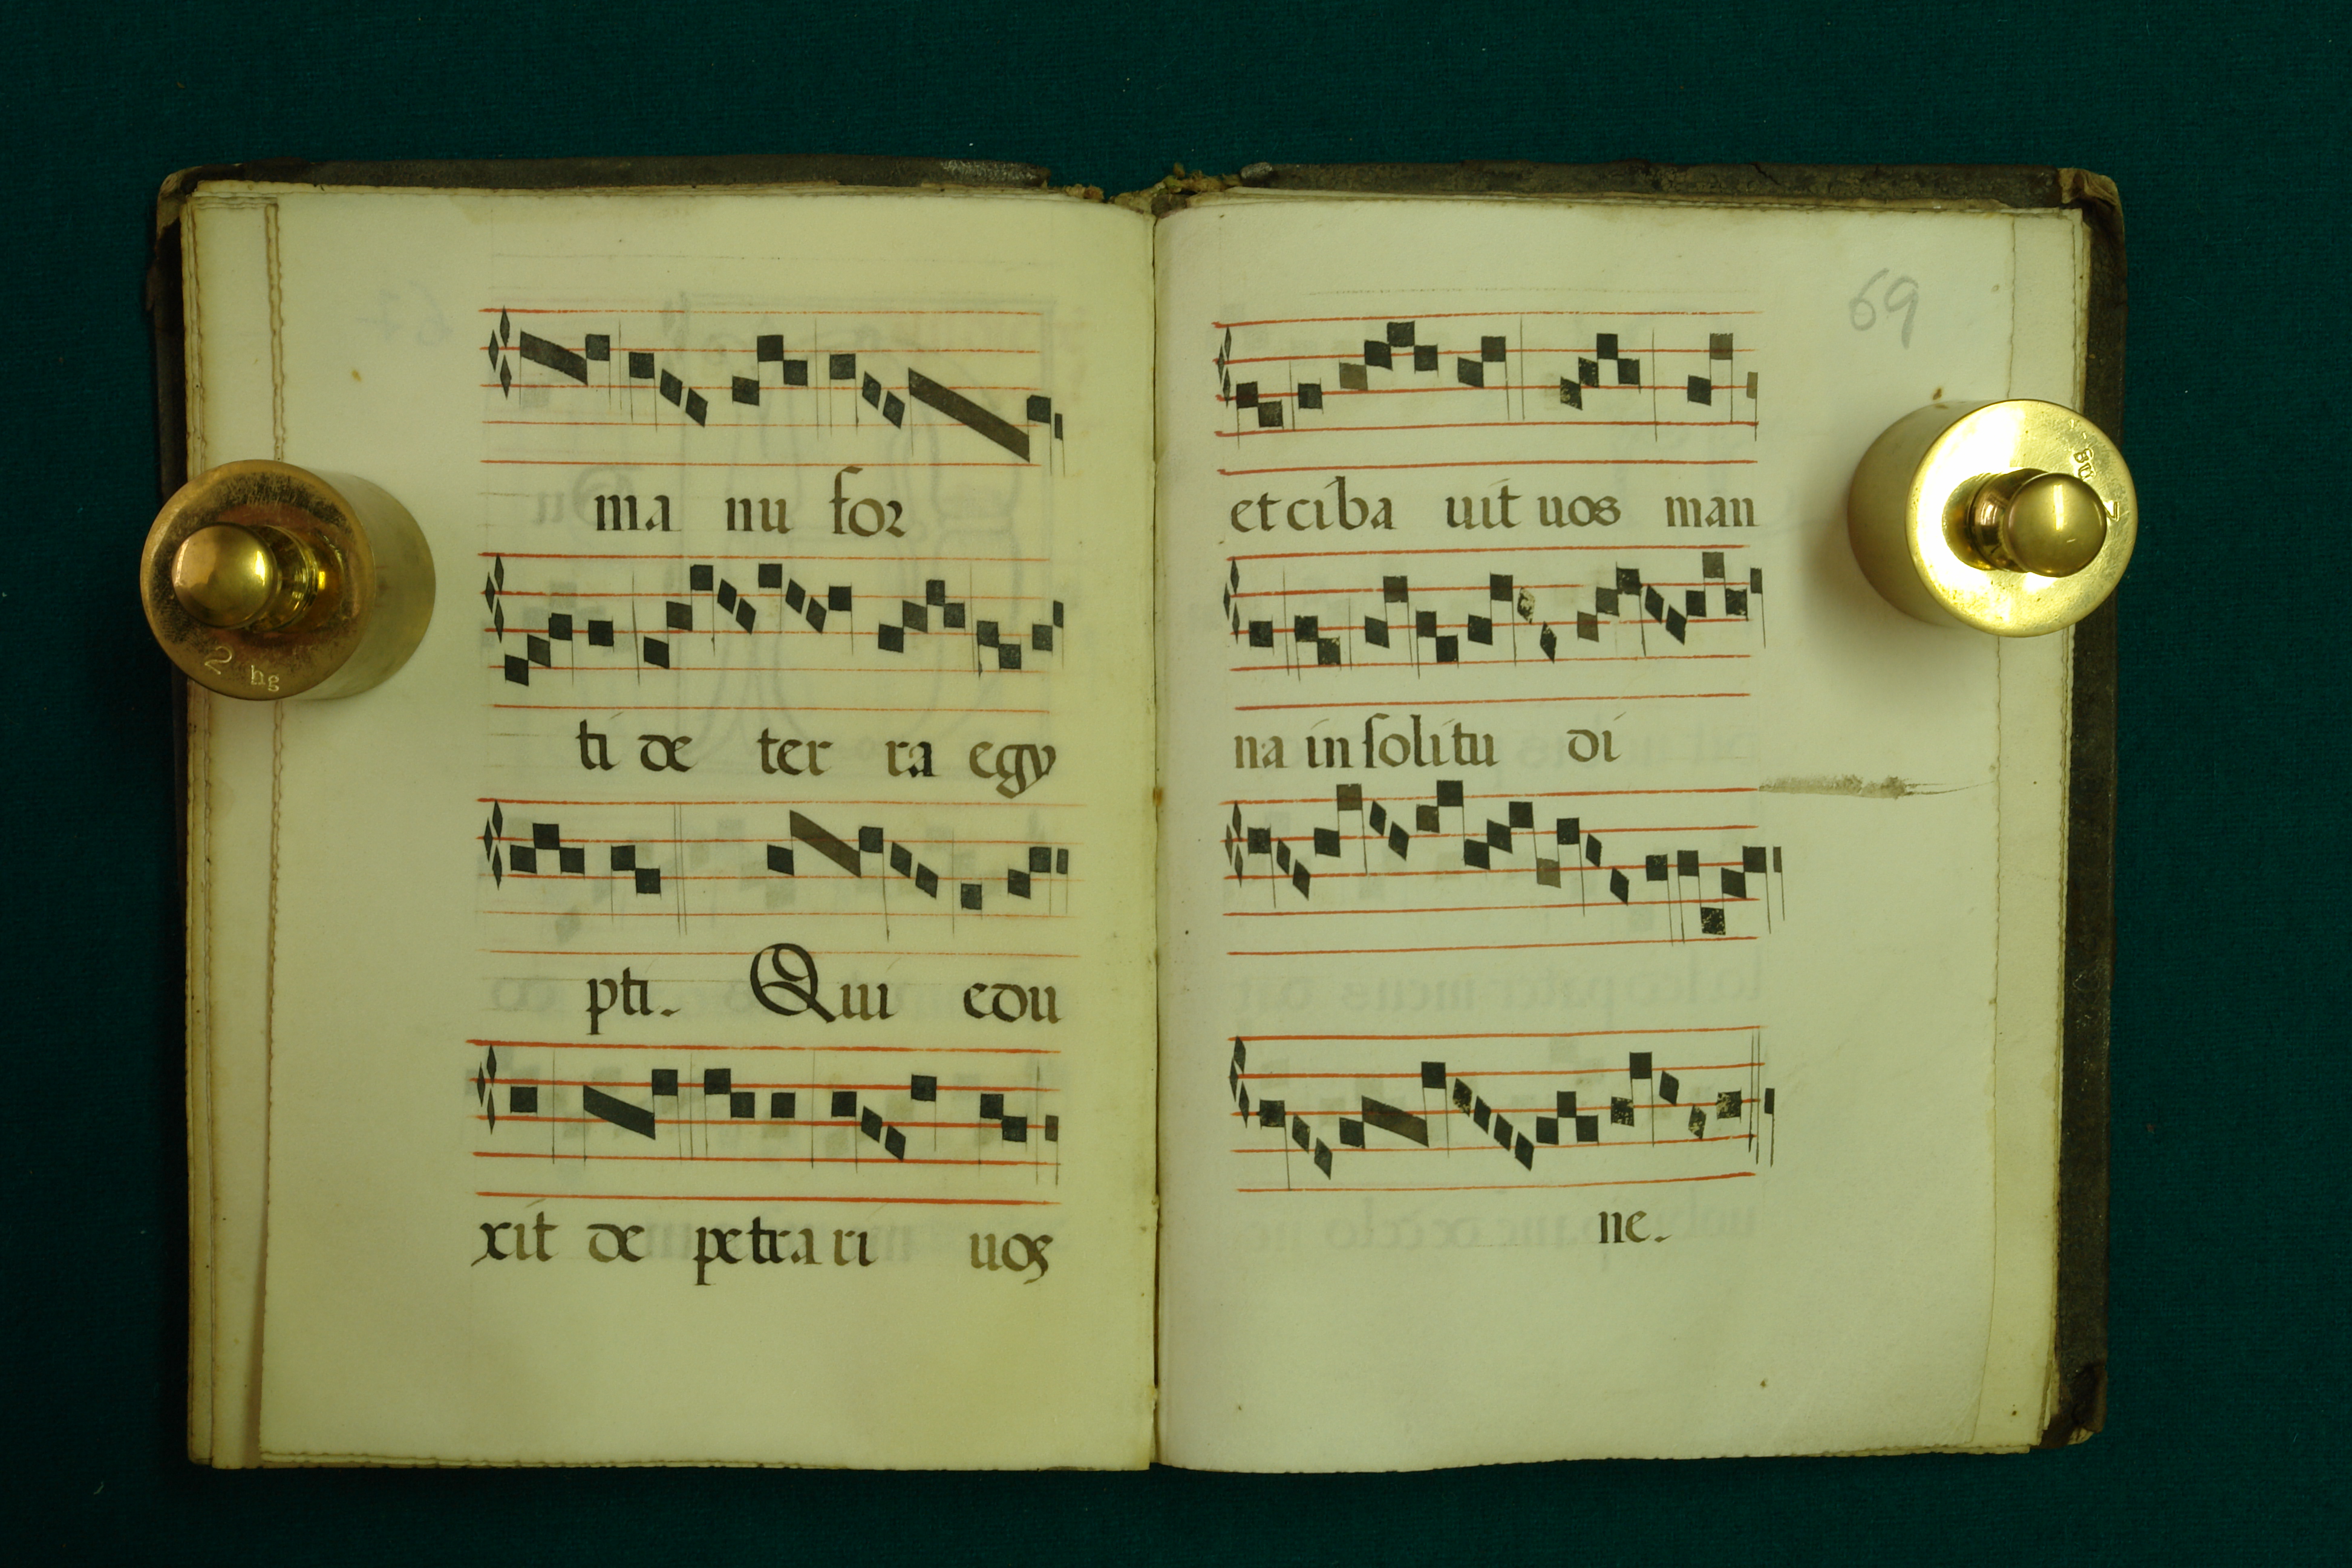 ma nu for
ti de ter ra egy
pti. Qui edu
xit de petra ri uos
69
et ciba uit uos man
na in ſolitu di
ne.
2
hg